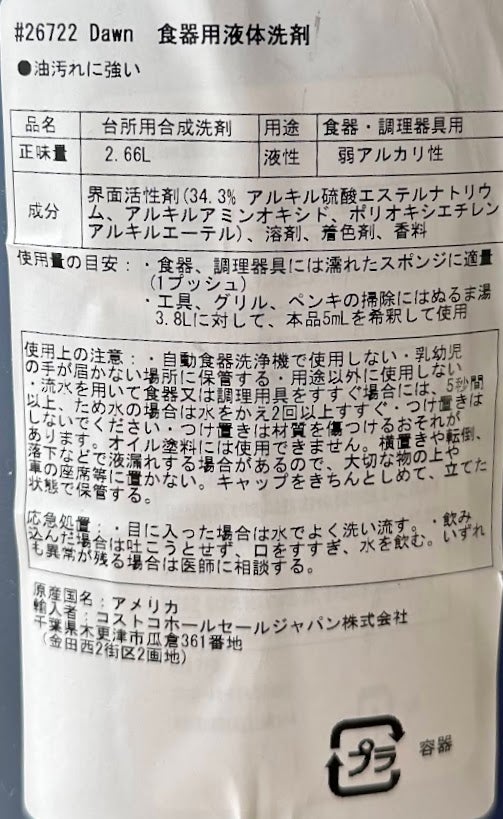 #26722 Dawn 食器用液体洗剤
●油汚れに強い
品名 台所用合成洗剤 用途 食器・調理器具用
正味量 2.66L 液性 弱アルカリ性
成分 界面活性剤(34.3% アルキル硫酸エステルナトリウ
ム、アルキルアミンオキシド、ポリオキシエチレン
アルキルエーテル)、溶剤、着色剤、香料
使用量の目安：・食器、調理器具には濡れたスポンジに適量
(1プッシュ)
・工具、グリル、ペンキの掃除にはぬるま湯
3.8Lに対して、本品5mLを希釈して使用
使用上の注意：・自動食器洗浄機で使用しない・乳幼児
の手が届かない場所に保管する・用途以外に使用しない
・流水を用いて食器又は調理用具をすすぐ場合には、5秒間
以上、ため水の場合は水をかえ2回以上すすぐ・つけ置きは
しないでください・つけ置きは材質を傷つけるおそれが
あります。オイル塗料には使用できません。横置きや転倒、
落下などで液漏れする場合があるので、大切な物の上や
車の座席等に置かない。キャップをきちんとしめて、立てた
状態で保管する。
応急処置：・目に入った場合は水でよく洗い流す。・飲み
込んだ場合は吐こうとせず、口をすすぎ、水を飲む。いずれ
も異常が残る場合は医師に相談する。
原産国名：アメリカ
輸入者：コストコホールセールジャパン株式会社
千葉県木更津市瓜倉361番地
(金田西2街区2画地)
プラ 容器